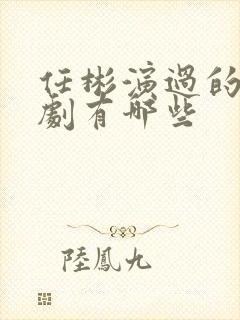 任彬演過的
劇有哪些
陸鳳九